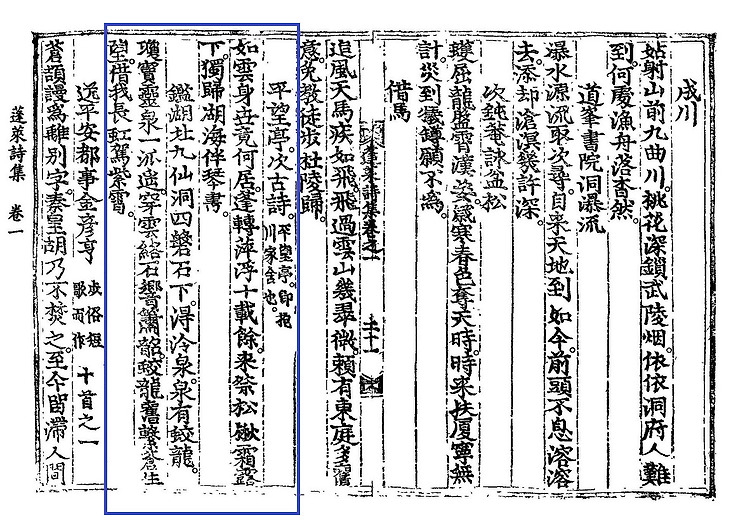 成川
姑射山前九曲川。桃花深鎖武陵烟。依依洞府人難
到。何處漁舟落杳然。
道峯書院洞瀑流
瀑水源流取次尋。自来天地到如今。前頭不息溶溶
去。添却滄溟幾許深。
次鈍菴詠盆松
蠖屈龍盤霄漢姿。感寒春色奪天時。時来扶厦寧無
計。災到犧罇願不爲。
借馬
蓬萊詩集卷之一 二十一
追風天馬疾如飛。飛過雲山幾翠微。賴有東庭多舊
意。免教徒步杜陵歸。
平望亭。次古詩。平望亭。卽抱川家舍也。
如雲身世竟何居。蓬轉萍浮十載餘。来祭松楸霜露
下。獨歸湖海伴琴書。
鑑湖址九仙洞四磐石下。得冷泉。泉有蛟龍。
瓊寶靈泉一派遙。穿雲絡石響簫韶。蛟龍舊蟄蒼生
望。借我長虹駕紫霄。
送平安都事金彦亨 俗短歌而作 十首之一
蒼頡謾爲離别字。秦皇胡乃不焚之。至今留滯人間
蓬萊詩集 卷一